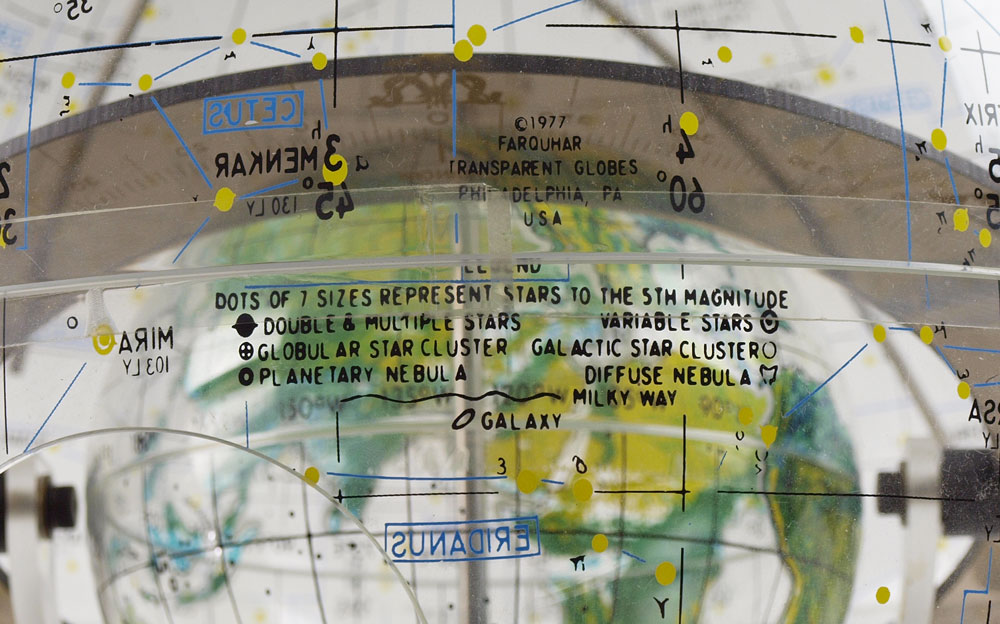 35°
CETUS
h
3
MENKAR
α
45°
130 LY
©1977
FARQUHAR
TRANSPARENT GLOBES
PHILADELPHIA, PA
USA
h
4
60°
RIX
LEGEND
DOTS OF 7 SIZES REPRESENT STARS TO THE 5TH MAGNITUDE
DOUBLE & MULTIPLE STARS VARIABLE STARS
GLOBULAR STAR CLUSTER GALACTIC STAR CLUSTER
PLANETARY NEBULA DIFFUSE NEBULA
MILKY WAY
GALAXY
MIRA
103 LY
ο
ERIDANUS
γ